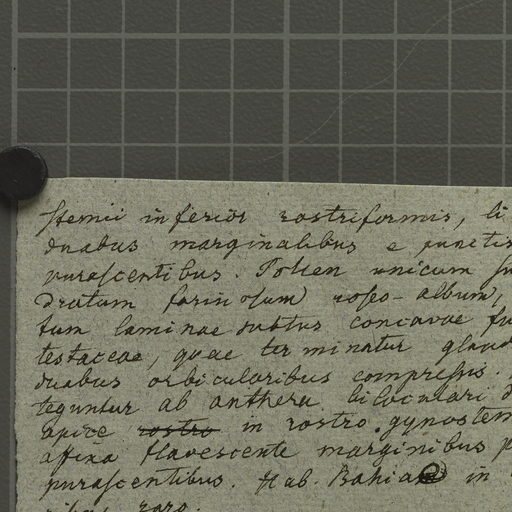 stemii inferior rostriformis, li
duabus marginalibus e punctis
purascentibus. Pollen unicum
dratum farinosum roseo-album,
tum laminae subtus concavae fu
testaceae, quae terminatur gland
duabus orbicularibus compressis.
teguntur ab anthera biloculari
apice rostro in rostro gynostem
affixa flavescente marginibus p
purascentibus. Hab. Bahia in
rarо.